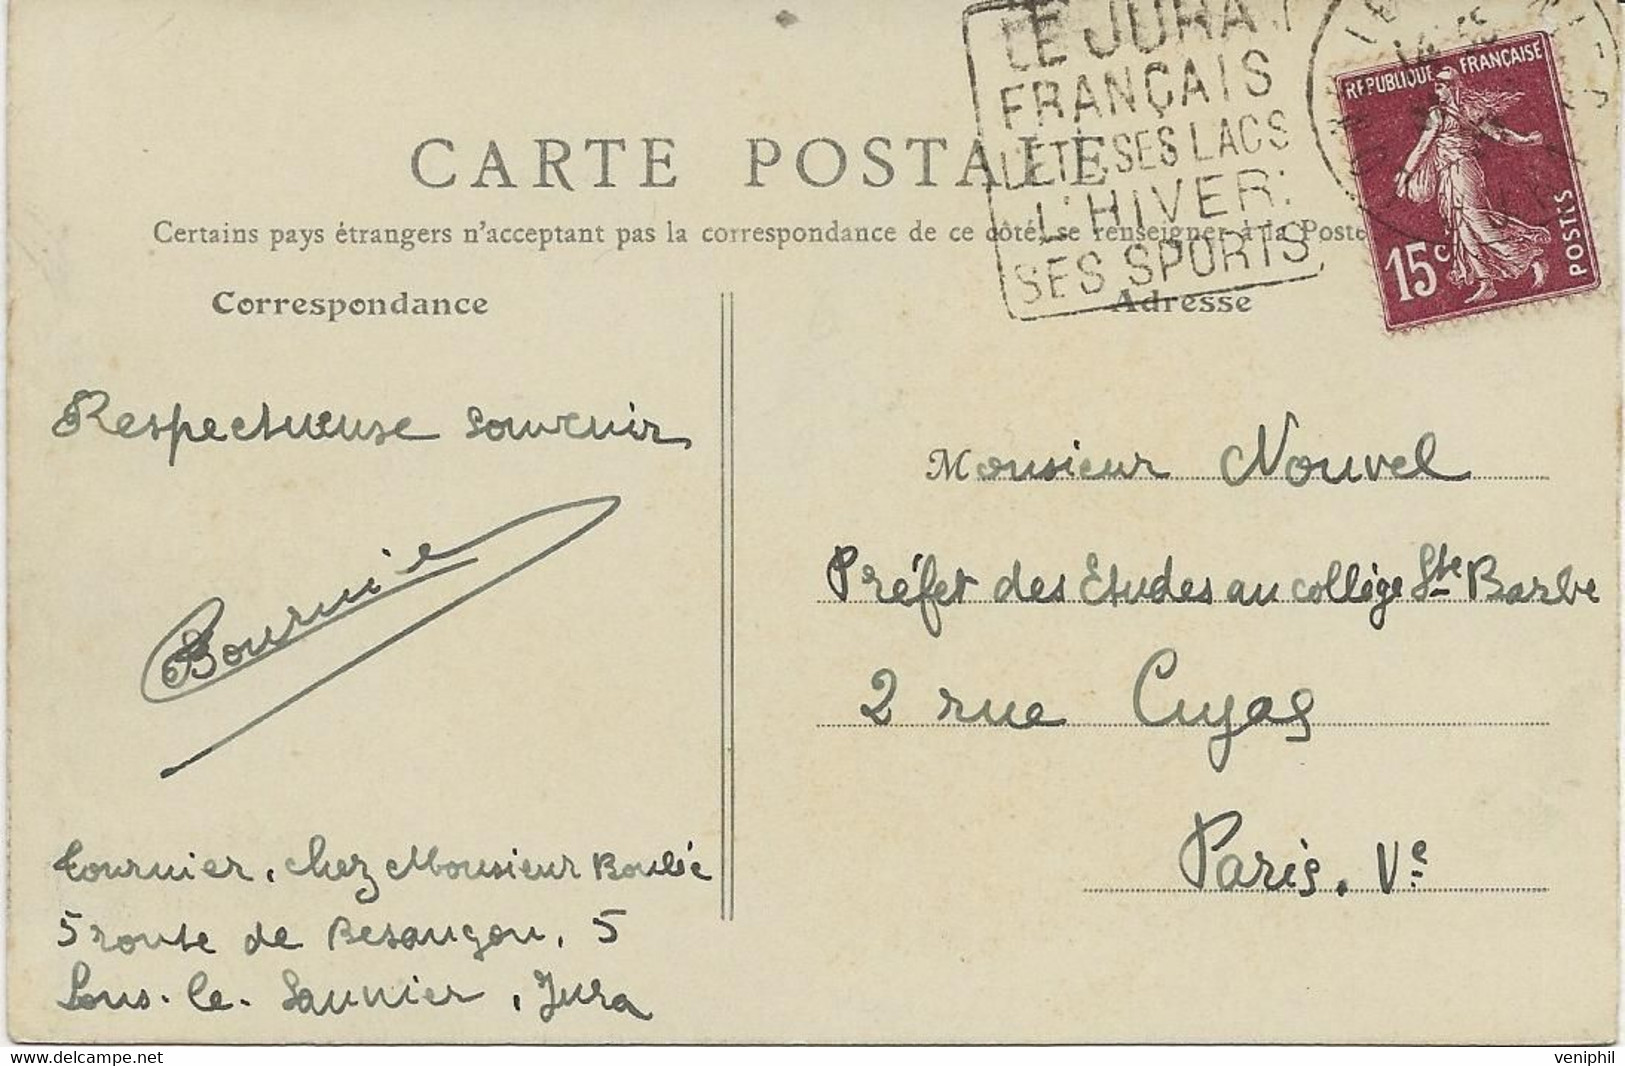 LE JURA
FRANÇAIS
L'ÉTÉ SES LACS
L'HIVER:
SES SPORTS
REPUBLIQUE FRANÇAISE
15c POSTES
CARTE POSTALE
Certains pays étrangers n'acceptent pas la correspondance de ce côté, se renseigner à la Poste
Correspondance
Adresse
Respectueuse souvenir
Monsieur Nouvel
Préfet des Etudes au collège Ste Barbe
2 rue Cujas
Paris. Ve
Tournier, chez Monsieur
5 route de Besançon, 5
Lons-le-Saunier, Jura
veniphil